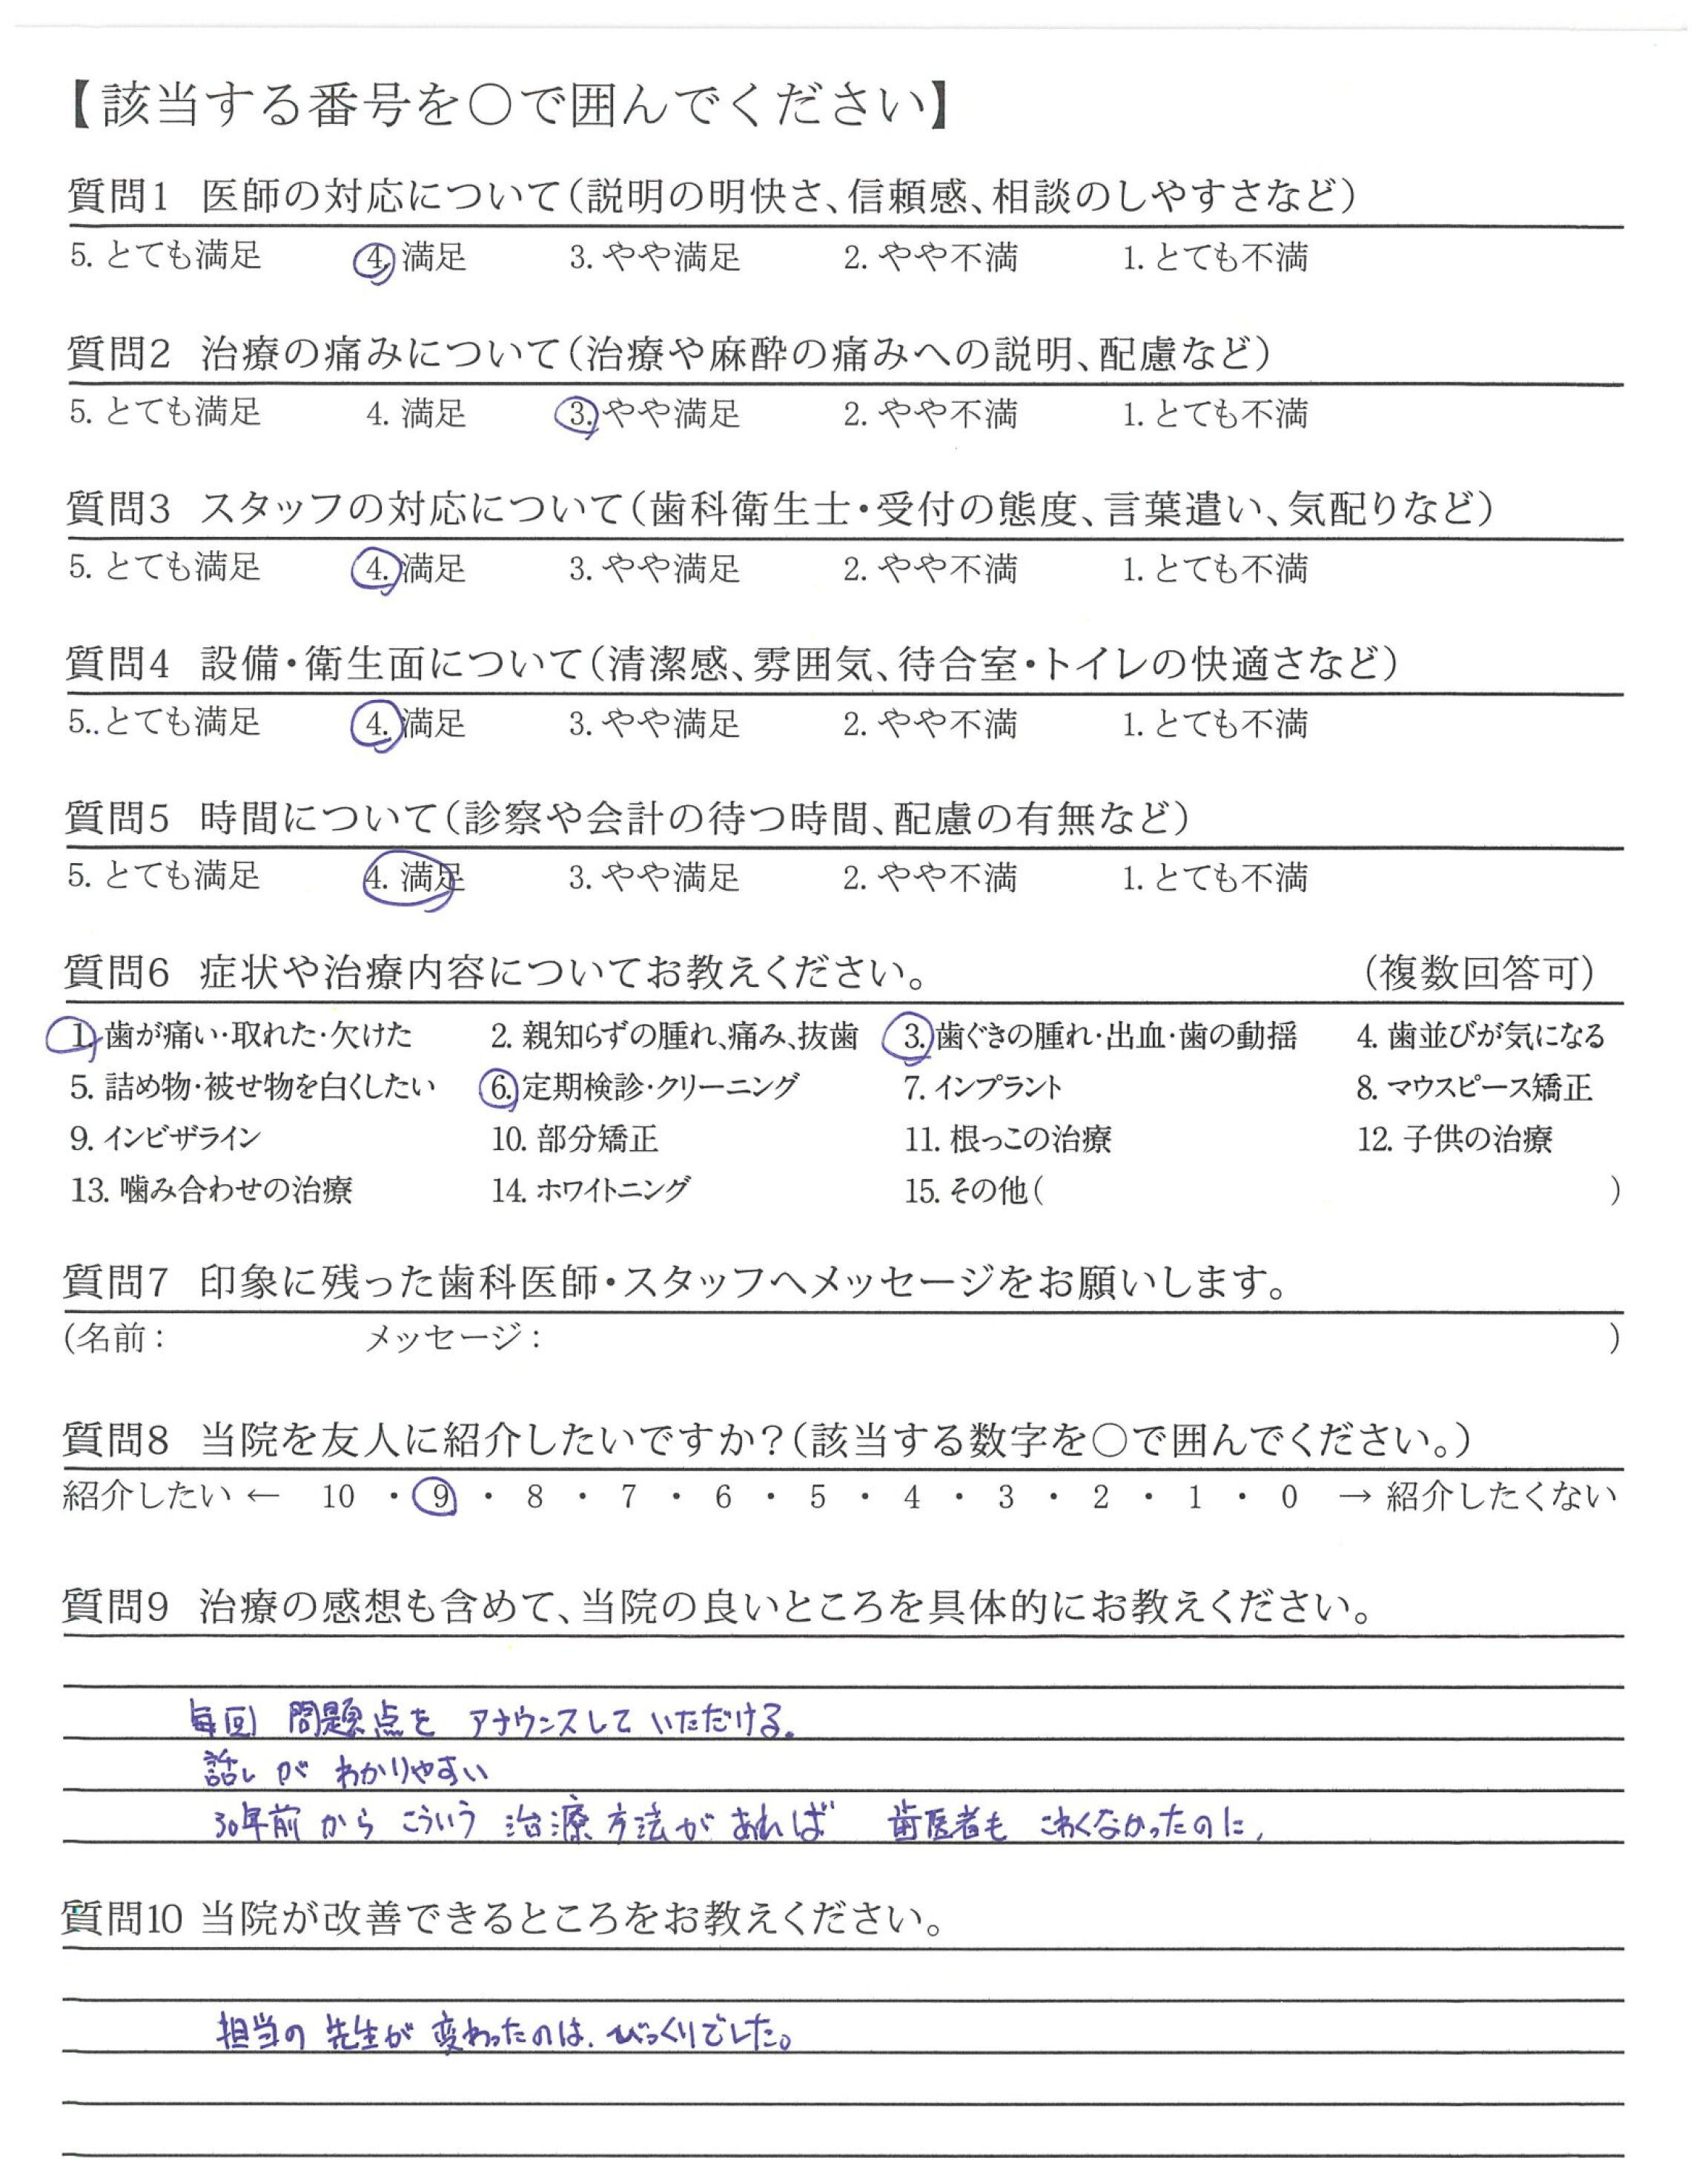 【該当する番号を○で囲んでください】
質問1 医師の対応について(説明の明快さ、信頼感、相談のしやすさなど)
5. とても満足 4. 満足 3. やや満足 2. やや不満 1. とても不満
質問2 治療の痛みについて(治療や麻酔の痛みへの説明、配慮など)
5. とても満足 4. 満足 3. やや満足 2. やや不満 1. とても不満
質問3 スタッフの対応について(歯科衛生士・受付の態度、言葉遣い、気配りなど)
5. とても満足 4. 満足 3. やや満足 2. やや不満 1. とても不満
質問4 設備・衛生面について(清潔感、雰囲気、待合室・トイレの快適さなど)
5.. とても満足 4. 満足 3. やや満足 2. やや不満 1. とても不満
質問5 時間について(診察や会計の待つ時間、配慮の有無など)
5. とても満足 4. 満足 3. やや満足 2. やや不満 1. とても不満
質問6 症状や治療内容についてお教えください。 (複数回答可)
1. 歯が痛い・取れた・欠けた 2. 親知らずの腫れ、痛み、抜歯 3. 歯ぐきの腫れ・出血・歯の動揺 4. 歯並びが気になる
5. 詰め物・被せ物を白くしたい 6. 定期検診・クリーニング 7. インプラント 8. マウスピース矯正
9. インビザライン 10. 部分矯正 11. 根っこの治療 12. 子供の治療
13. 噛み合わせの治療 14. ホワイトニング 15. その他( )
質問7 印象に残った歯科医師・スタッフへメッセージをお願いします。
(名前: メッセージ: )
質問8 当院を友人に紹介したいですか?(該当する数字を○で囲んでください。)
紹介したい ← 10 ・ 9 ・ 8 ・ 7 ・ 6 ・ 5 ・ 4 ・ 3 ・ 2 ・ 1 ・ 0 → 紹介したくない
質問9 治療の感想も含めて、当院の良いところを具体的にお教えください。
毎回 問題点を アナウンスして いただける。
話しが わかりやすい
30年前から こういう 治療方法があれば 歯医者も こわくなかったのに、
質問10 当院が改善できるところをお教えください。
担当の 先生が 変わったのは、びっくりでした。